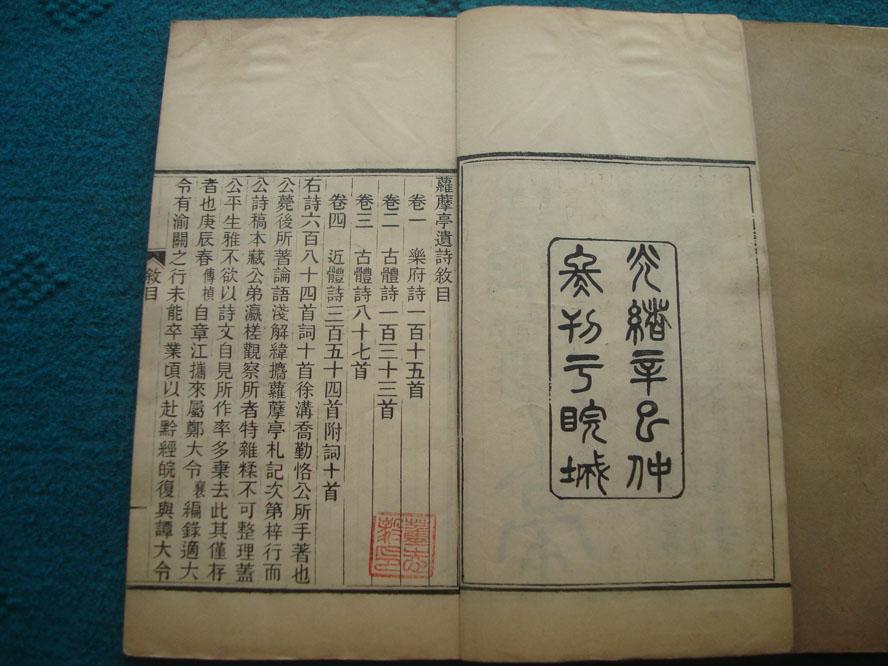 光緒辛巳仲
冬刊于皖城
蘿藦亭遺詩敘目
卷一 樂府詩一百十五首
卷二 古體詩一百三十三首
卷三 古體詩八十七首
卷四 近體詩三百五十四首附詞十首
右詩六百八十四首詞十首徐溝喬勤恪公所手著也
公薨後所著論語淺解緯攟蘿藦亭札記次第梓行而
公詩稿本藏公弟瀛槎觀察所者特雜糅不可整理蓋
公平生雅不欲以詩文自見所作率多棄去此其僅存
者也庚辰春傳楨自章江攜來屬鄭大令襄編錄適大
令有渝關之行未能卒業頃以赴黔經皖復與譚大令
敘目